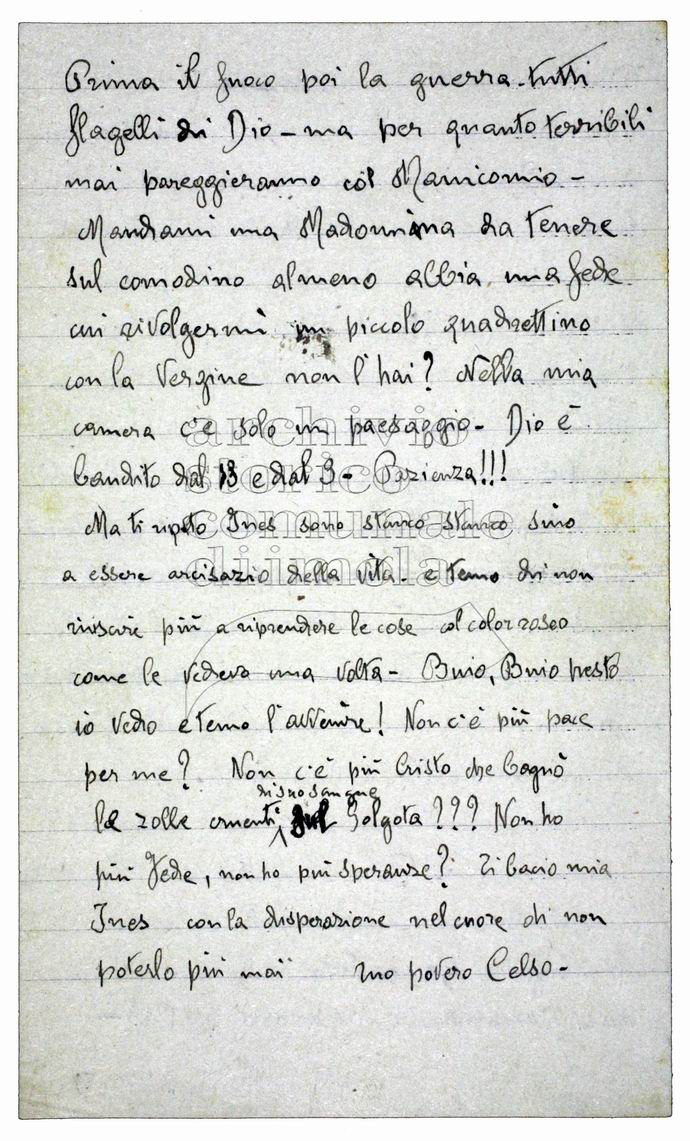 Prima il fuoco poi la guerra - tutti
flagelli di Dio - ma per quanto terribili
mai pareggieranno col Manicomio -
Mandami una Madonnina da tenere
sul comodino almeno abbia una fede
cui rivolgermi un piccolo quadrettino
con la Vergine non l'hai? Nella mia
camera c'è solo un paesaggio - Dio è
bandito dal 13 e dal 3 - Pazienza!!!
Ma ti ripeto Ines sono stanco stanco sino
a essere arcisazio della vita - e temo di non
riuscire più a riprendere le cose col color roseo
come le vedeva una volta - Buio, Buio pesto
io vedo e temo l'avvenire! Non c'è più pace
per me? Non c'è più Cristo che bagnò
di suo sangue
le zolle cruenti sul Golgota??? Non ho
più Fede, non ho più speranze? Ti bacio mia
Ines con la disperazione nel cuore di non
poterlo più mai tuo povero Celso -
archivio
storico
comunale
di imola